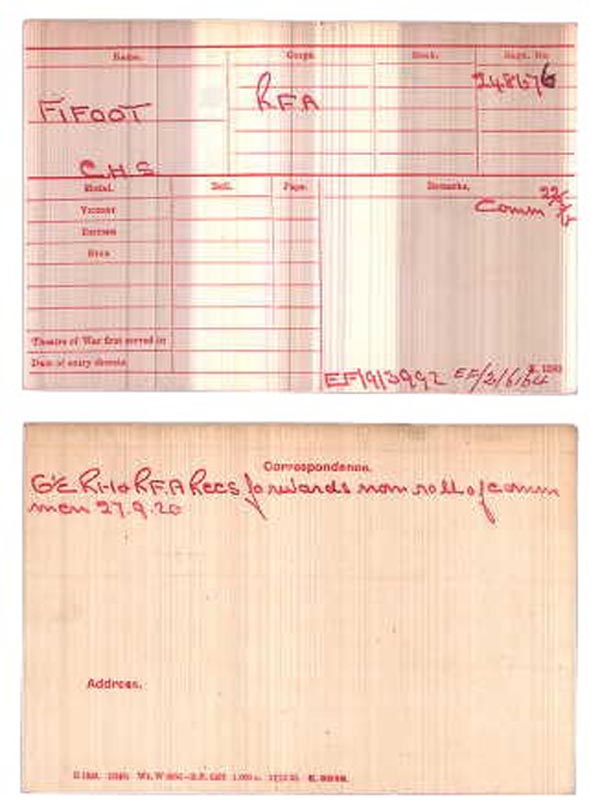 Name. Corps. Rank. Regtl. No.
FIFOOT RFA 248676
C.H.S
Medal. Roll. Page. Remarks.
Victory Comm
British
Star
Theatre of War first served in
Date of entry therein
EF/9/3992 EF/2/6/64
Correspondence.
RH & RFA Recs forwards nom roll of comm
men 27.9.20
Address.